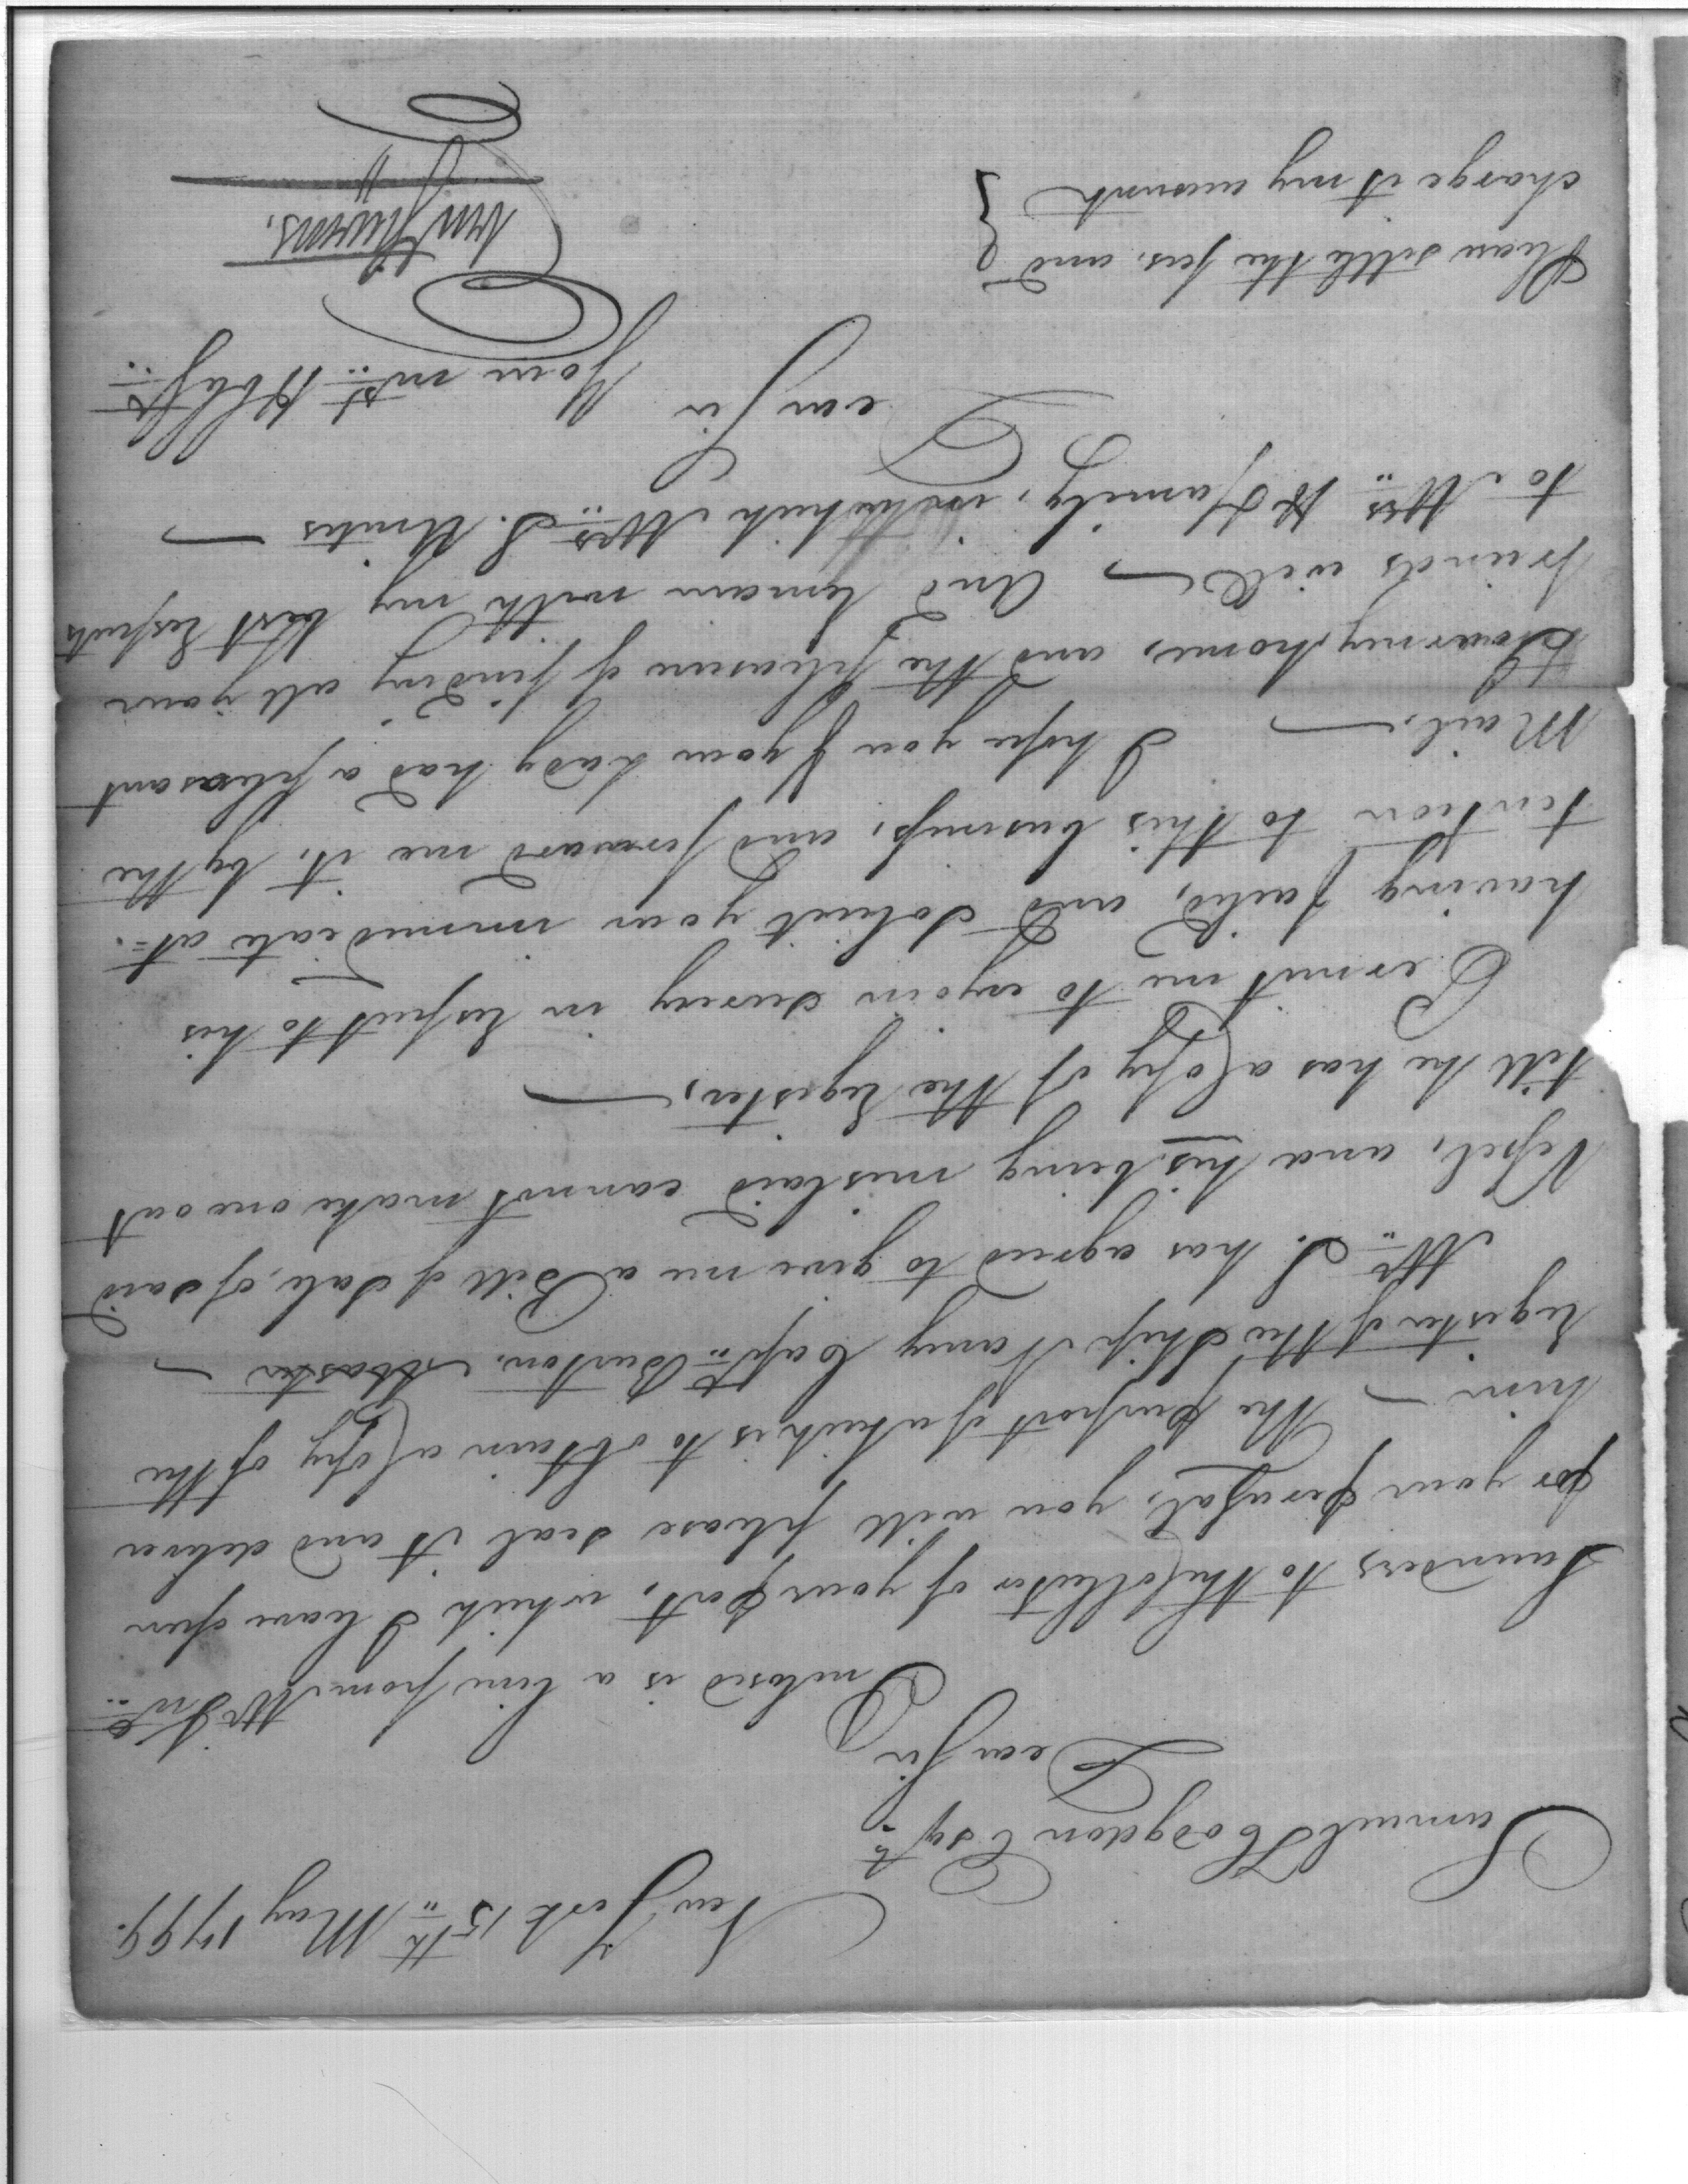 New York 15th May 1799.
Samuel Hodgdon Esqr
Dear Sir
Inclosed is a line from Mr Jno
Saunders to the Collector of your Port, which I leave open
for your perusal, you will please seal it and deliver
him — The purport of which is to obtain a Copy of the
Register of the Ship Nancy Capt Burton. Master —
Mr S. has agreed to give me a Bill of Sale, of said
Vessel, and his being mislaid cannot make one out
till he has a Copy of the Register, —
Permit me to enjoin in respect to his
having failed, and solicit your immediate at-
tention to this business, and forward me it, by the
Mail. — I hope you & your Lady had a pleasant
Journey home, and the pleasure of finding all your
friends well — And remain with my best respects
to Mrs H & family, in which Mrs S. Unites —
Dear Sir
Your mt Hble St
Please settle the fees. and
charge it my account
Wm Simmons.